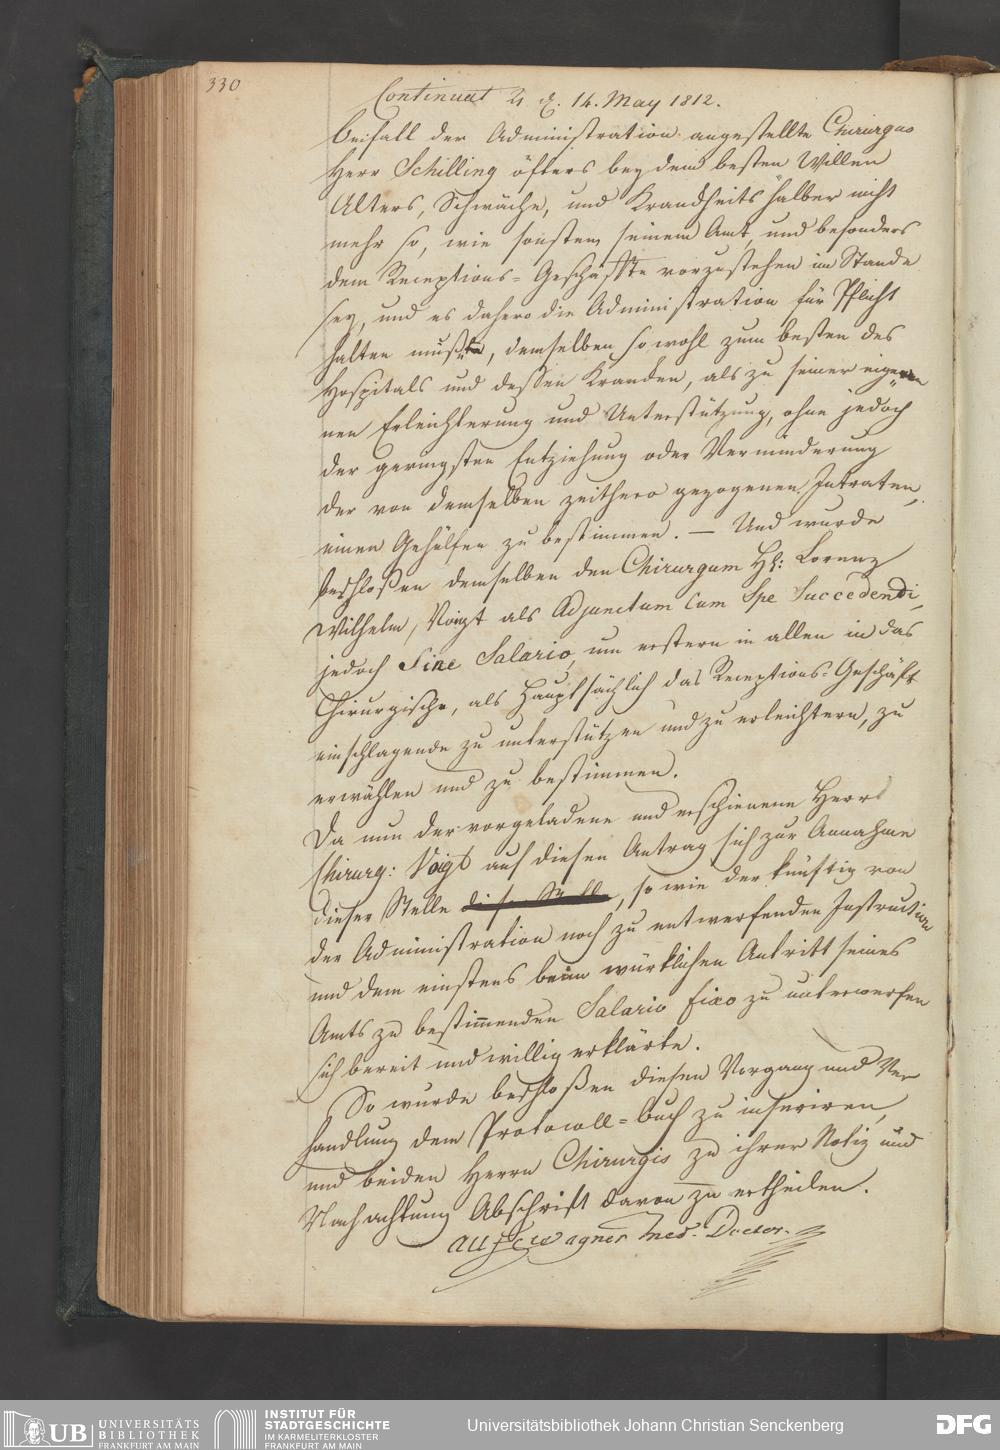 330
Continuat ♃ d. 14. May 1812.
Beifall der Administration angestellte Chirurgus
Herr Schilling öfters bey dem besten Willen
Alters, Schwäche, und Krandheits halber nicht
mehr so, wie sonsten seinem Amt, und besonders
dem Receptions-Geschäffte vorzustehen im Stande
sey, und es dahero die Administration für Pflicht
halten mußte, demselben sowohl zum besten des
Hospitals und deßen Kranden, als zu seiner eige
nen Erleichterung und Unterstützung, ohne jedoch
der geringsten Entziehung oder Verminderung
der von demselben zeithero gezogenen Intraten,
einen Gehülfen zu bestimmen. — Und wurde
beschloßen demselben den Chirurgum H: Lorenz
Wilhelm, Voigt als Adjunctum Cum Spe Succedendi,
jedoch Sine Salario, um erstern in allen in das
Chirurgische, als Hauptsächlich das Receptions-Geschäft
einschlagende zu unterstützen und zu erleichtern, zu
erwählen und zu bestimmen.
Da nun der vorgeladene und erschienene Herr
Chirurg: Voigt auf diesen Antrag sich zur Annahme
dieser Stelle diese Stelle, so wie der künftig von
der Administration noch zu entwerfenden Instruction
und dem einstens beim würklichen Antritt seines
Amts zu bestim̄enden Salario fixo zu unterwerfen
sich bereit und willig erklärte.
So wurde beschloßen diesen Vorgang und Ver
handlung dem Protocoll-Buch zu inseriren,
und beiden Herrn Chirurgis zu ihrer Notiz und
Nachachtung Abschrifft davon zu ertheilen.
Wagner Med. Doctor.
UB UNIVERSITÄTS
BIBLIOTHEK
FRANKFURT AM MAIN
INSTITUT FÜR
STADTGESCHICHTE
IM KARMELITERKLOSTER
FRANKFURT AM MAIN
Universitätsbibliothek Johann Christian Senckenberg
DFG